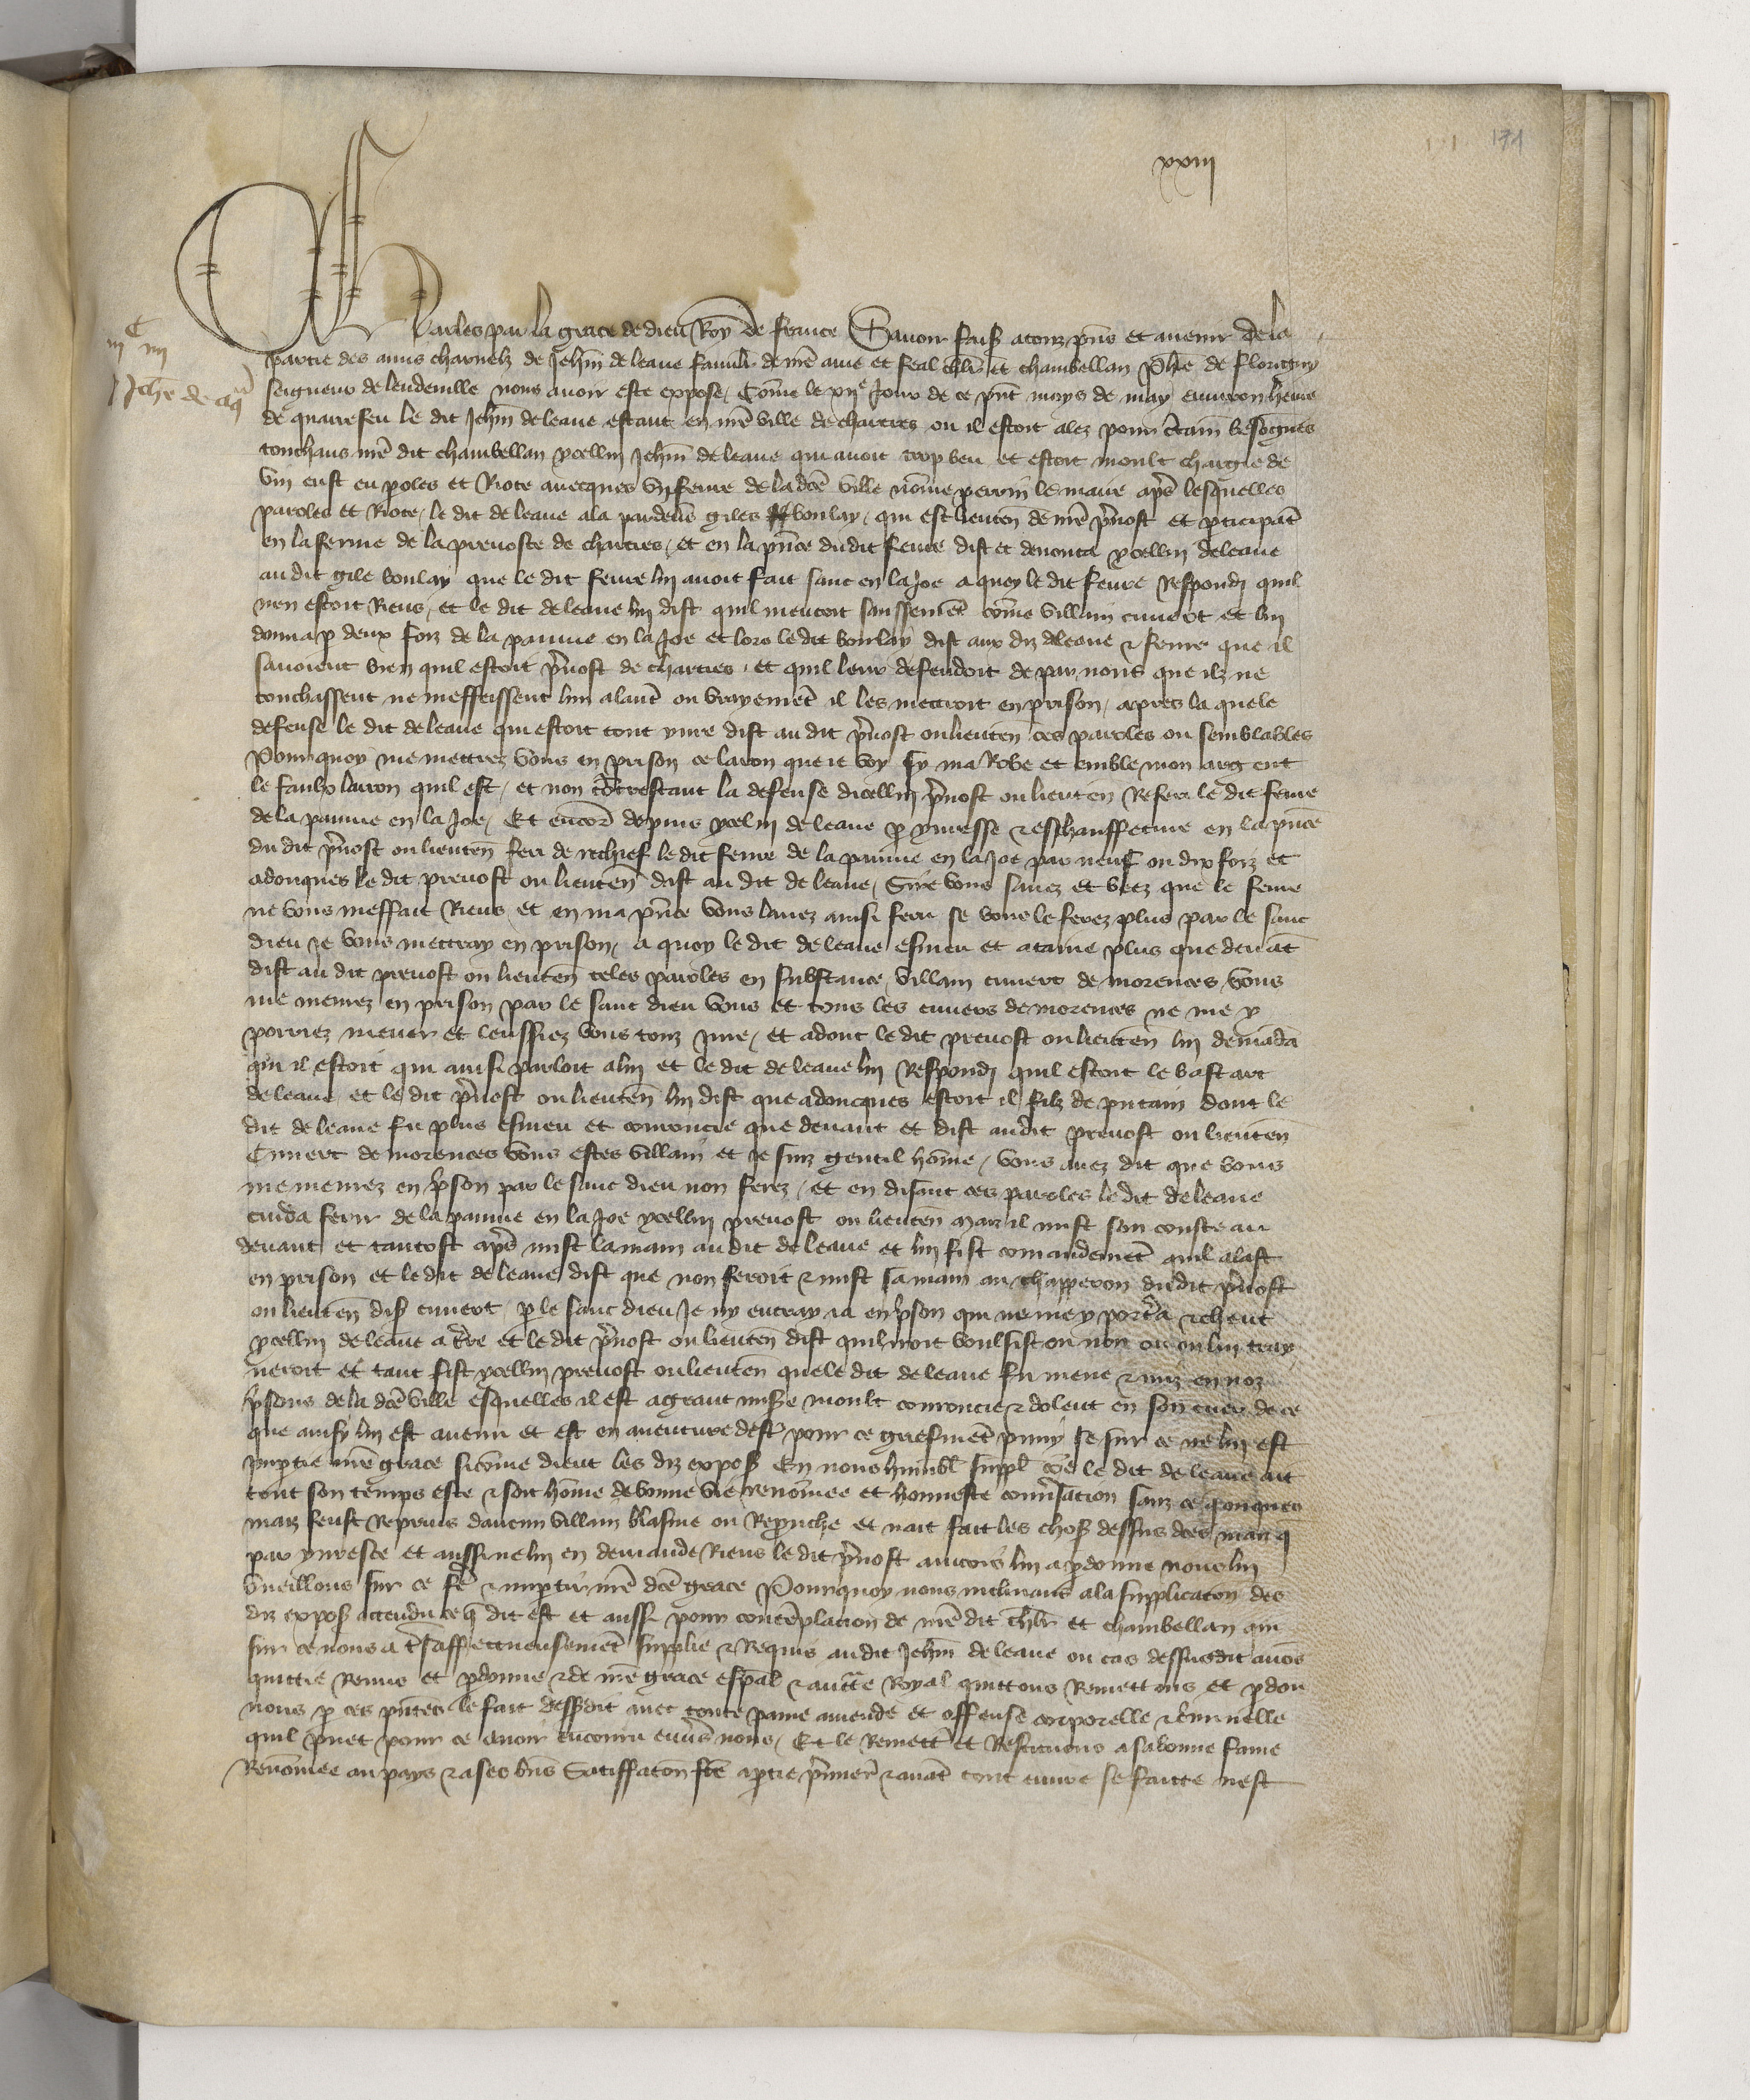 xxiii
171
Charles par la grace de dieu Roy de france Savoir faiss a touz pñs et avenir de la
partie des amis charnelz de Jehñ de leaue famili de nrẽ ame et feal chlr et chambellan Phẽ de florigny
seigneur de leudeville nous avoir este expose / Cõme le xije Jour de ce pñt moys de may environ heure
de quarrefeu le dit Jehñ de leaue estant en nrẽ ville de chartres ou il estoit alez pour c̃tain besognes
touchans nrẽ dit chambellan ycellui Jehñ de leaue qui avoit trop beu et estoit moult chargie de
vin eust eu poles et Riote avecques un fevre de la dcẽ ville nõme perrin le maire apẽs lesquelles
paroles et Riote / le dit de leaue ala pardevẽs giles boulay / qui est lieutẽn de nrẽ p̃vost et pticipãt
en la ferme de la prevoste de chartres / et en la pñce dudit fevre dist et denonca ycellui de leaue
au dit gile boulay que le dit fevre lui avoit fait sanc en la Joe a quoy le dit fevre Respondi quil
nen estoit Riens / et le dit de leaue lui dist quil mentoit faussemẽt cõme villain cuvert et lui
donna p deux foiz de la paume en la Joe et lors le dit boulay dist aux diz de leaue & fevre que il
savoient bien quil estoit p̃vost de chartres / et quil leur defendoit de par nous que ilz ne
touchassent ne meffeissent lun a lautẽ ou vrayemẽt il les mettroit en prison / apres la quele
defense le dit de leaue qui estoit tout yvre dist au dit p̃vost ou lieutẽn ces paroles ou semblables
Pourquoy me mettrez vous en prison ce laron que ie voy cy ma Robe et emble mon argent
le faulx larron quil est / et non cõtrestant la defense dicellui p̃vost ou lieutẽn Referi le dit fevre
de la paume en la Joe / Et encorẽ depuis ycelui de leaue p yvresse & eschauffeture en la pñce
du dit p̃vost ou lieutẽn feri de rechief le dit fevre de la paume en la Joe par neuf ou dix foiz et
adonques le dit prevost ou lieutẽn dist au dit de leaue / Sire vous savez et veez que le fevre
ne vous meffait Riens / et en ma pñce vous lavez ainsi feru se vous le ferez plus par le sanc
dieu Je vous mettray en prison / a quoy le dit de leaue esmeu et ataine plus que devãt
dist au dit prevost ou lieutẽn teles paroles en substance / villain cuvert de morences / vous
me menrez en prison par le sanc dieu vous et tous les cuvers de morences ne me y
porriez mener et leussiez vous touz Jure / et adont le dit prevost ou lieutẽn lui demãda
qui il estoit qui ainsi parloit a lui et le dit de leaue lui Respondi quil estoit le bastart
de leaue / et le dit p̃vost ou lieutẽn lui dist que adoncques estoit il filz de putain dont le
dit de leaue fu plus esmeu et couroucie que devant et dist au dit prevost ou lieutẽn
Cuvert de morences vous estes villain et Je suiz gentil hõme / vous avez dit que vous
me menrez en p̃son par le sanc dieu non ferez / et en disant ces paroles le dit de leaue
cuida ferir de la paume en la Joe ycellui prevost ou lieutẽn maiz il mist son couste au
devant et tantost apẽs mist la main au dit de leaue et lui fist cõmandemẽt quil alast
en prison et le dit de leaue dist que non feroit & mist sa main au chapperon du dit p̃vost
ou lieutẽn diss cuvert / p le sanc dieu Je ny entray ia en p̃son qui ne me y port̃a & cheut
ycellui de leaue a tẽre et le dit p̃vost ou lieutẽn dist quil iroit voulsist ou non ou on lui tray
neroit et tant fist ycellui prevost ou lieutẽn que le dit de leaue fu mene & miz en noz
p̃sons de la dcẽ ville esquelles il est a grant misẽe moult couroucie & dolent en son cuer de ce
que ainsy lui est avenu et est en aventure destẽ pour ce griefmẽt puny se sur ce ne lui est
imptie nrẽ grace si cõme dient les diz exposs En nous humbl suppl cõe le dit de leaue ait
tout son temps este & soit hõme de bonne vie renõmee et honneste conv̾sation sanz ce qonques
maiz feust Repris daucun villain blasme ou Reprouche et nait fait les chosẽs dessus dcẽs maiz q
par yvresce et aussi ne lui en demande Riens le dit p̃vost aincois lui a pdonne nous lui
vueillons sur ce fẽ & imptir nrẽ dcẽ grace Pourquoy nous inclinans a la supplicacõn des
diz exposs attendu ce q̃ dit est et aussi pour contẽplacion de nrẽ dit chlr et chambellan qui
sur ce nous a tẽsaffectueusemẽt supplie & Requis au dit Jehñ de leaue ou cas dessusdit avõs
quittie Remis et pdonne & de nrẽ grace espãl & auctẽ Royal quittons Remettons et pdon
nons p ces pñtes le fait dessdit avec toute paine amende et offense corporelle & c̾minelle
quil puet pour ce avoir encouru env̾s nous / Et le Remettẽ et Restituons a sa bonne fame
Renõmee au pays & a ses bñs Satiffacõn fcẽ a ptie p̾mier̃ & avãt tout euvre se faitte nest